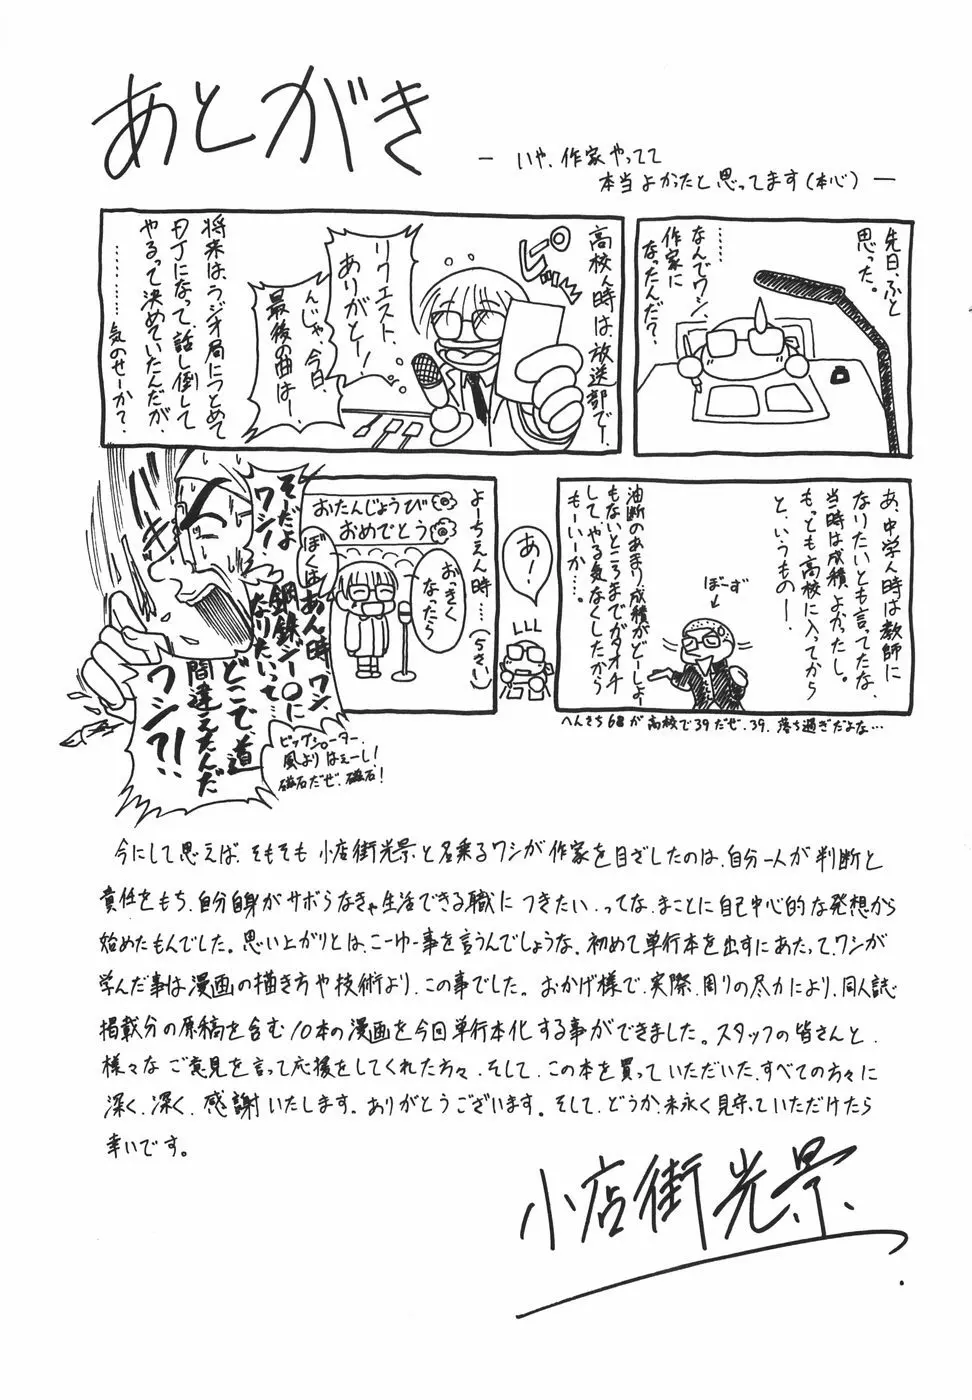 あとがき
― いや、作家やってて
本当よかったと思ってます(本心) ―
先日、ふと
思った。
……
なんでワシ、
作家に
なったんだ?
高校ん時は放送部でー、
ピーッ
リクエスト、
ありがとー!
んじゃ、今日、
最後の曲はー、
将来は、ラジオ局につとめて
DJになって、話し倒して
やるって決めていたんだが、
………気のせーか?
あ、中学ん時は教師に
なりたいとも言ってたな、
当時は成績よかったし。
もっとも高校に入ってから
と、いうものー、
ぼーず
油断のあまり、成績がどーしよー
もないところまでガタオチ
して、やる気なくしたから
もーいーか…。
へんさち68が高校で39だぜ、39、落ち過ぎだよな…
あ!
よーちえん時…(ちさい)
おたんじょうび
おめでとう
おっきく
なったら
ぼくは
そーだよ
ワシ!
あん時、ワシ、
鋼鉄ジー○に
なりたいって…
どこで道
間違えたんだ
ワシ?!
ビッグシューター、
風よりはぇーし!
磁石だぜ、磁石!
今にして思えば、そもそも小店街光景と名乗るワシが作家を目ざしたのは、自分一人が判断と
責任をもち、自分自身がサボらなきゃ生活できる職につきたい、ってな、まことに自己中心的な発想から
始めたもんでした。思い上がりとは、こーゆー事を言うんでしょうな。初めて単行本を出すにあたって、ワシが
学んだ事は漫画の描き方や技術より、この事でした。おかげ様で、実際、周りの尽力により、同人誌
掲載分の原稿を含む10本の漫画を今回単行本化する事ができました。スタッフの皆さんと、
様々なご意見を言って応援をしてくれた方々、そして、この本を買っていただいた、すべての方々に
深く、深く、感謝いたします。ありがとうございます。そして、どうか、末永く見守っていただけたら
幸いです。
小店街光景